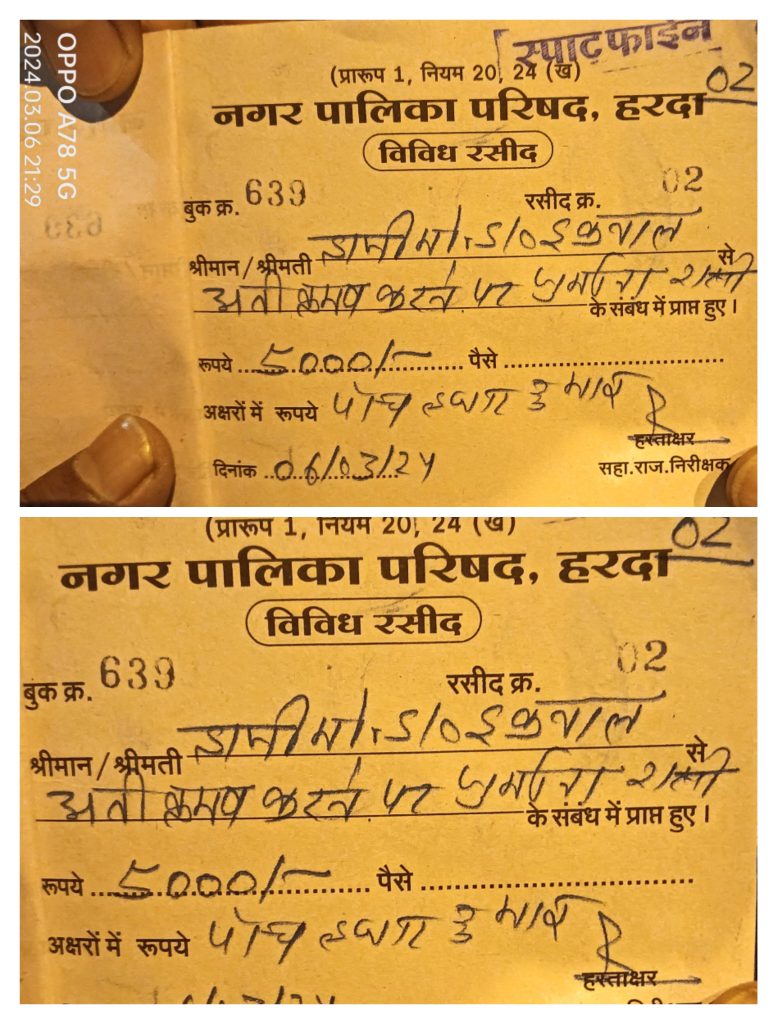 OPPO A78 5G
2024.03.06 21:29
स्पाट फाईन
(प्रारूप 1, नियम 20, 24 (ख)
02
नगर पालिका परिषद, हरदा
विविध रसीद
बुक क्र. 639 रसीद क्र. 02
श्रीमान/श्रीमती मो. S/O इकबाल से
अतीक्रमण करने पर राशी के संबंध में प्राप्त हुए।
रूपये 5000/- पैसे
अक्षरों में रूपये पाँच हजार रु मात्र
हस्ताक्षर
दिनांक 06/03/24 सहा.राज.निरीक्षक
(प्रारूप 1, नियम 20, 24 (ख)
02
नगर पालिका परिषद, हरदा
विविध रसीद
बुक क्र. 639 रसीद क्र. 02
श्रीमान/श्रीमती मो. S/O इकबाल से
अतीक्रमण करने पर राशी के संबंध में प्राप्त हुए।
रूपये 5000/- पैसे
अक्षरों में रूपये पाँच हजार रु मात्र
हस्ताक्षर